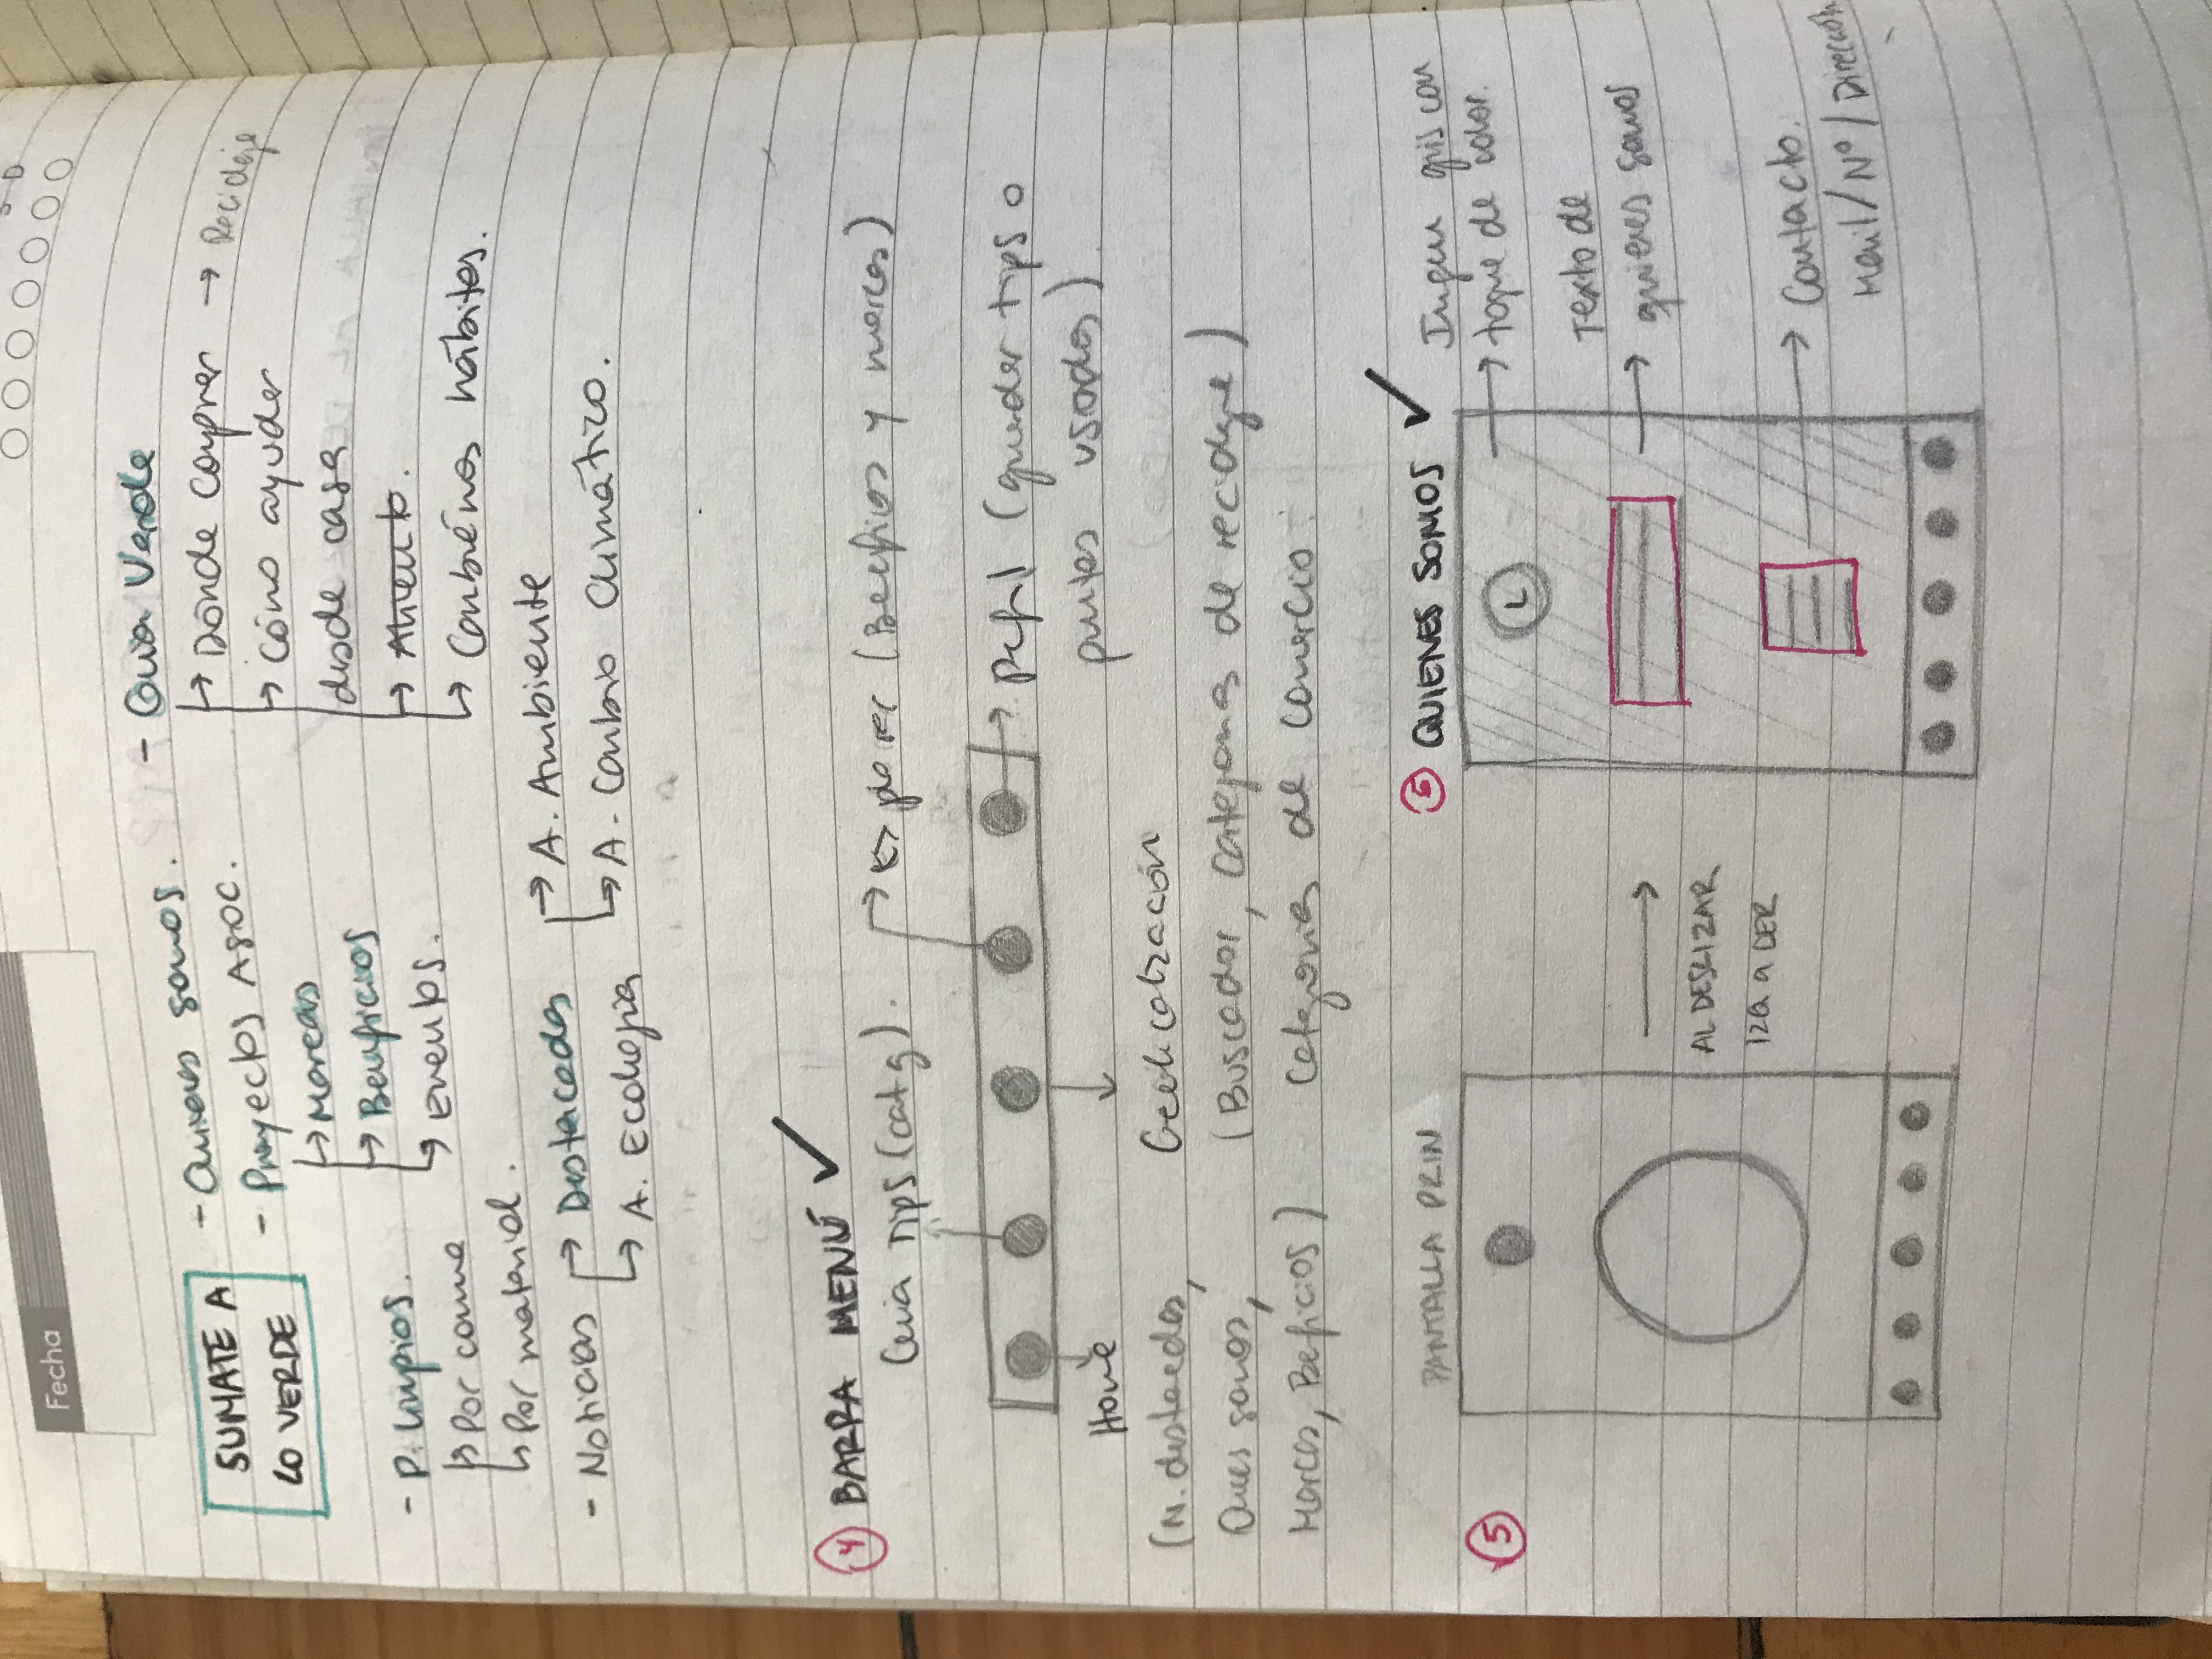 Fecha
S D
SUMATE A
LO VERDE
- Quienes somos.
- Proyectos Asoc.
→ Marcas
→ Beneficios
→ Eventos.
- Guia Verde
→ Dónde comprar → Reciclaje
→ Cómo ayudar
desde casa
→ Aliento.
→ Cambiémos hábitos.
- P. limpios.
→ Por comuna
→ Por material.
- Noticias → Destacadas → A. Ambiente
→ A. Ecología → A. Cambio Climático.
4 BARRA MENÚ ✓
Guia Tips (catg).
→ Explorar (Beneficios y marcas)
→ Perfil (guardar tips o
puntos usados)
Home
(N. destacadas,
Quienes somos,
Marcas, Beneficios)
Geolicalización
(Buscador, categorias de reciclaje)
categorias de comercio
PANTALLA PRIN
5
AL DESLIZAR
IZQ a DER
6 QUIENES SOMOS ✓
L
Imagen gris con
toque de color.
Texto de
quienes somos
Contacto.
Mail/Nº/Dirección